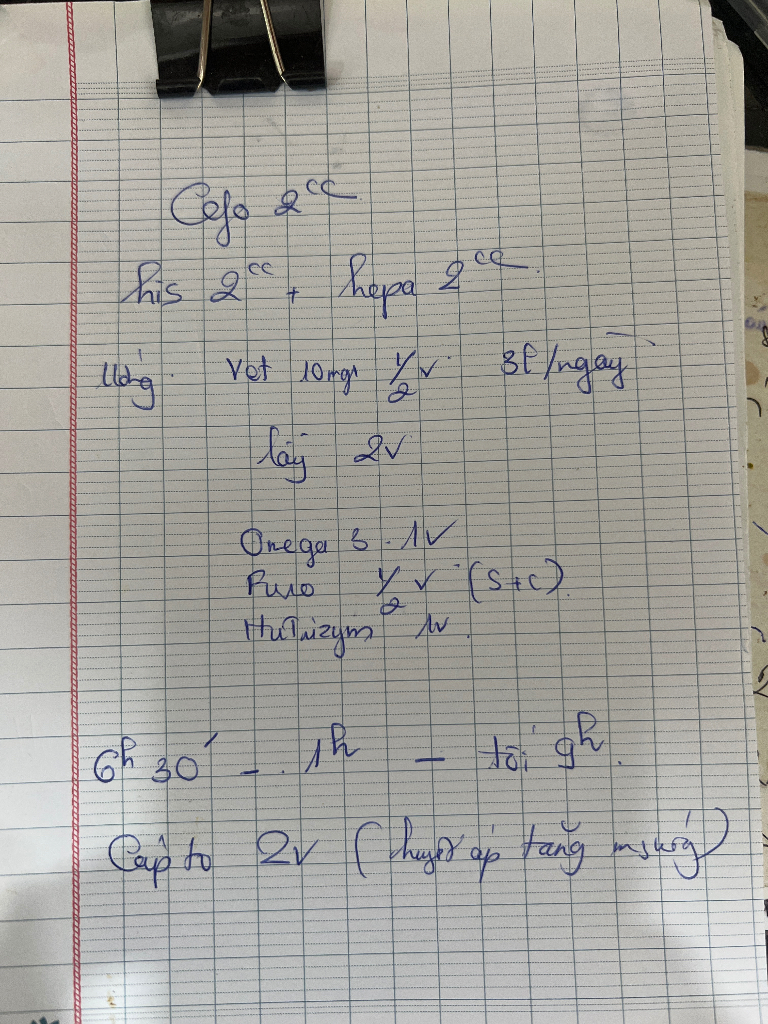 Cefo 2cc
his 2cc + hepa 2cc
Uống Vet 10mg 1/2 v 3l/ngày
lấy 2v
Omega 3 . 1v
Furo 1/2 v (S+C)
Nutrizym 1v.
6h 30' - 1h - tối 9h.
Cap to 2v (huyết áp tăng mới uống)